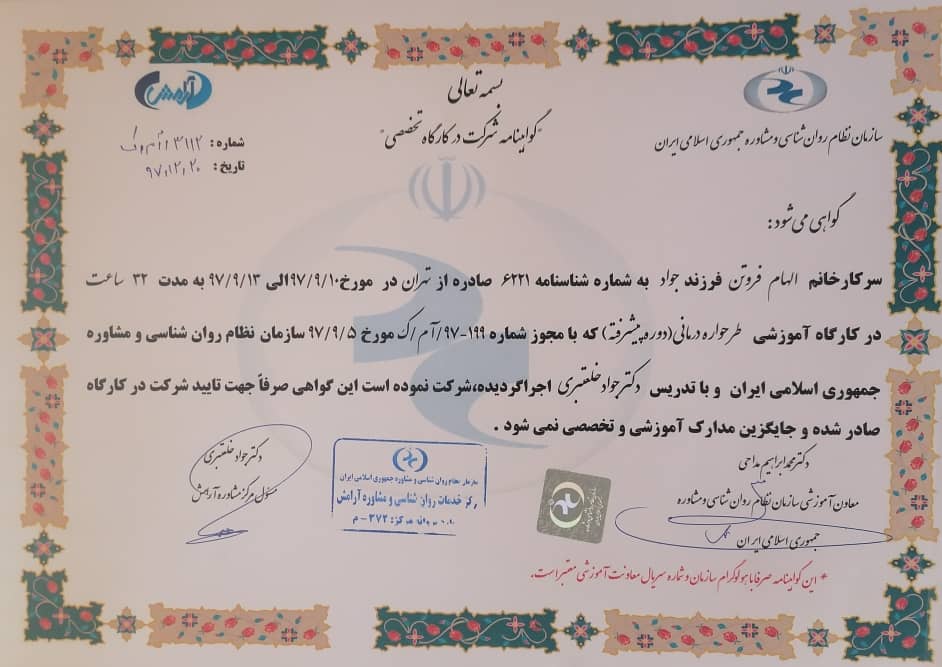 بسمه تعالی
"گواهینامه شرکت در کارگاه تخصصی"
آرامش
سازمان نظام روان شناسی و مشاوره جمهوری اسلامی ایران
شماره:
تاریخ: ۹۷,۱۲,۲۰
گواهی می شود:
سرکارخانم الهام فروتن فرزند جواد به شماره شناسنامه ۶۲۲۱ صادره از تهران در مورخ ۹۷/۹/۱۰ الی ۹۷/۹/۱۳ به مدت ۳۲ ساعت
در کارگاه آموزشی طرحواره درمانی (دوره پیشرفته) که با مجوز شماره ۱۹۹-۹۷/آم/ک مورخ ۹۷/۹/۵ سازمان نظام روان شناسی و مشاوره
جمهوری اسلامی ایران و با تدریس دکتر جواد خلعتبری اجراگردیده،شرکت نموده است این گواهی صرفاً جهت تایید شرکت در کارگاه
صادر شده و جایگزین مدارک آموزشی و تخصصی نمی شود .
دکتر محمد ابراهیم مداحی
معاون آموزشی سازمان نظام روان شناسی و مشاوره
جمهوری اسلامی ایران
سازمان نظام روان شناسی و مشاوره جمهوری اسلامی ایران
مرکز خدمات روان شناسی و مشاوره آرامش
شماره پروانه مرکز: ۳۷۲ - م
دکتر جواد خلعتبری
مسئول مرکز مشاوره آرامش
* این گواهینامه صرفا با هولوگرام سازمان و شماره سریال معاونت آموزشی معتبر است.